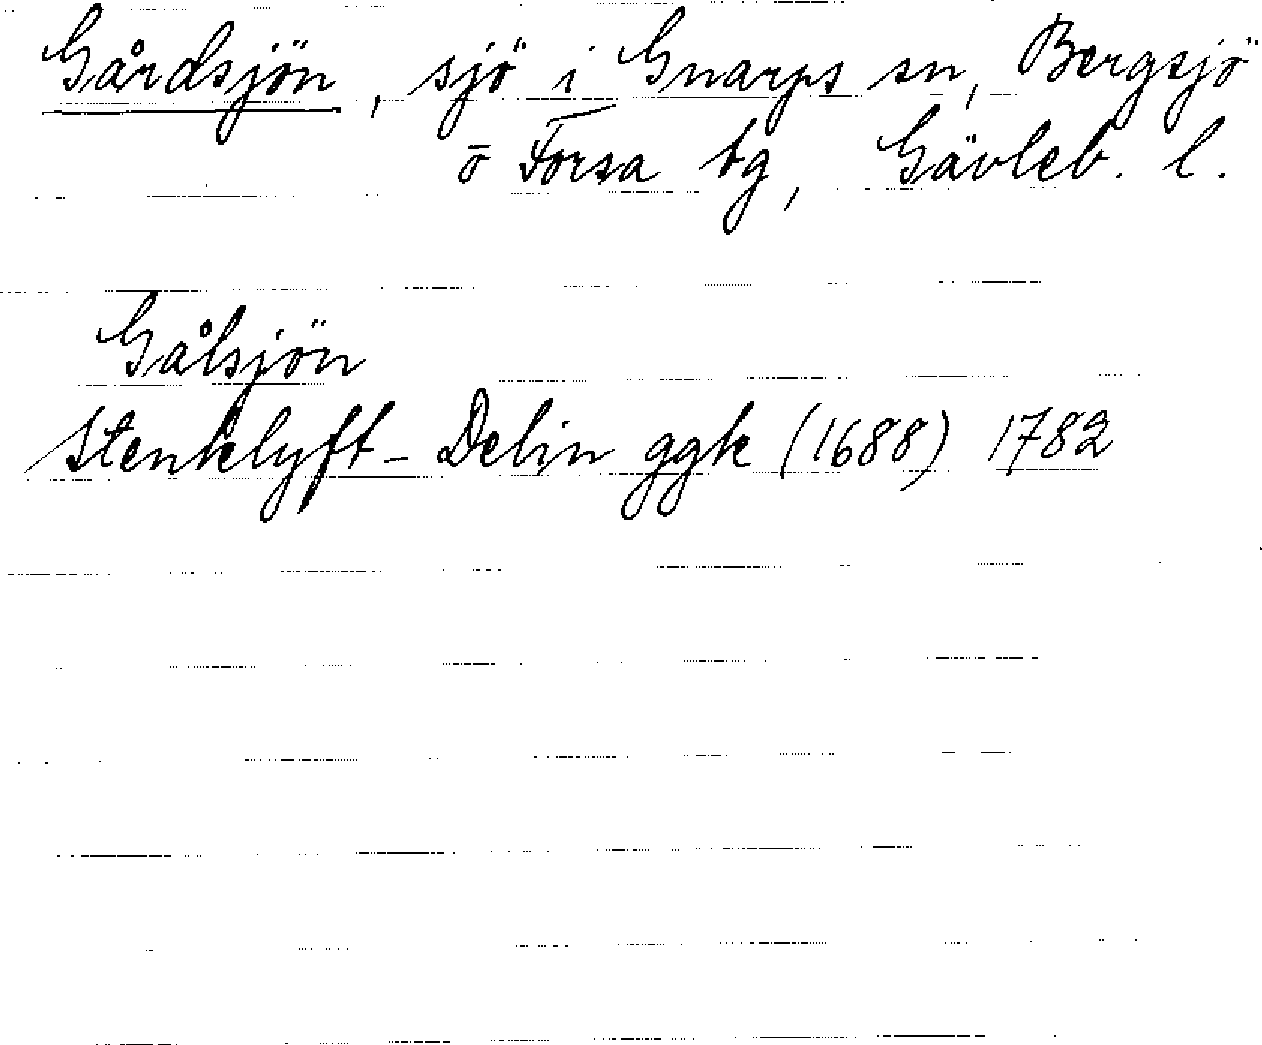 Gårdsjön, sjö i Gnarps sn, Bergsjö
o Forsa tg, Gävleb. l.
Gålsjön
Stenklyft-Delin ggk (1688) 1782